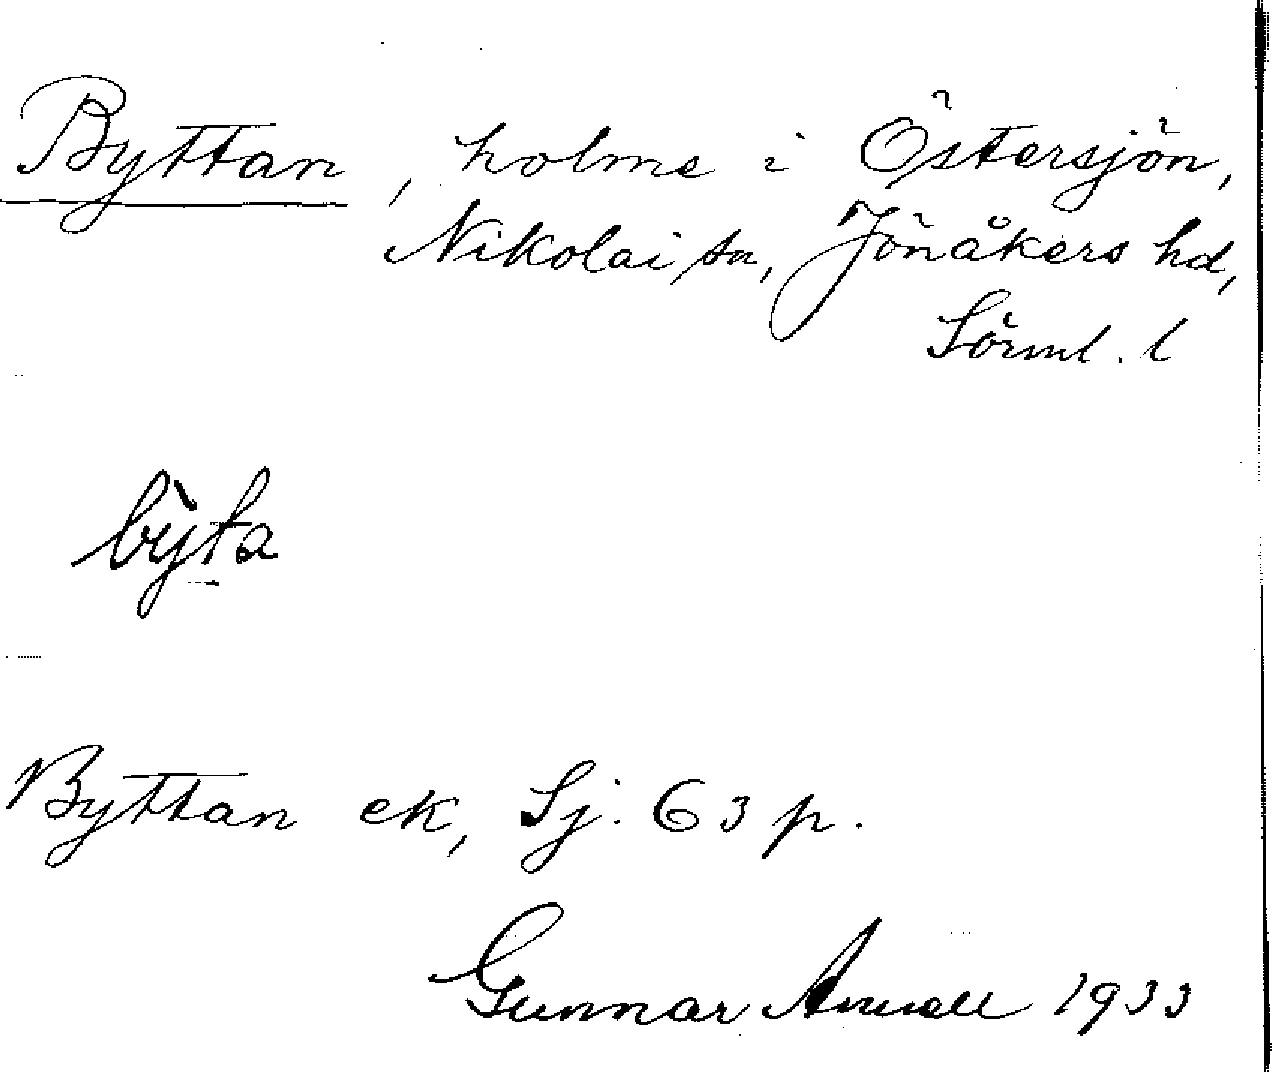 Byttan, holme i Östersjön,
Nikolai sn, Jönåkers hd,
Sörml. l
bỳta
Byttan ek, Sj. 63 p.
Gunnar 1933